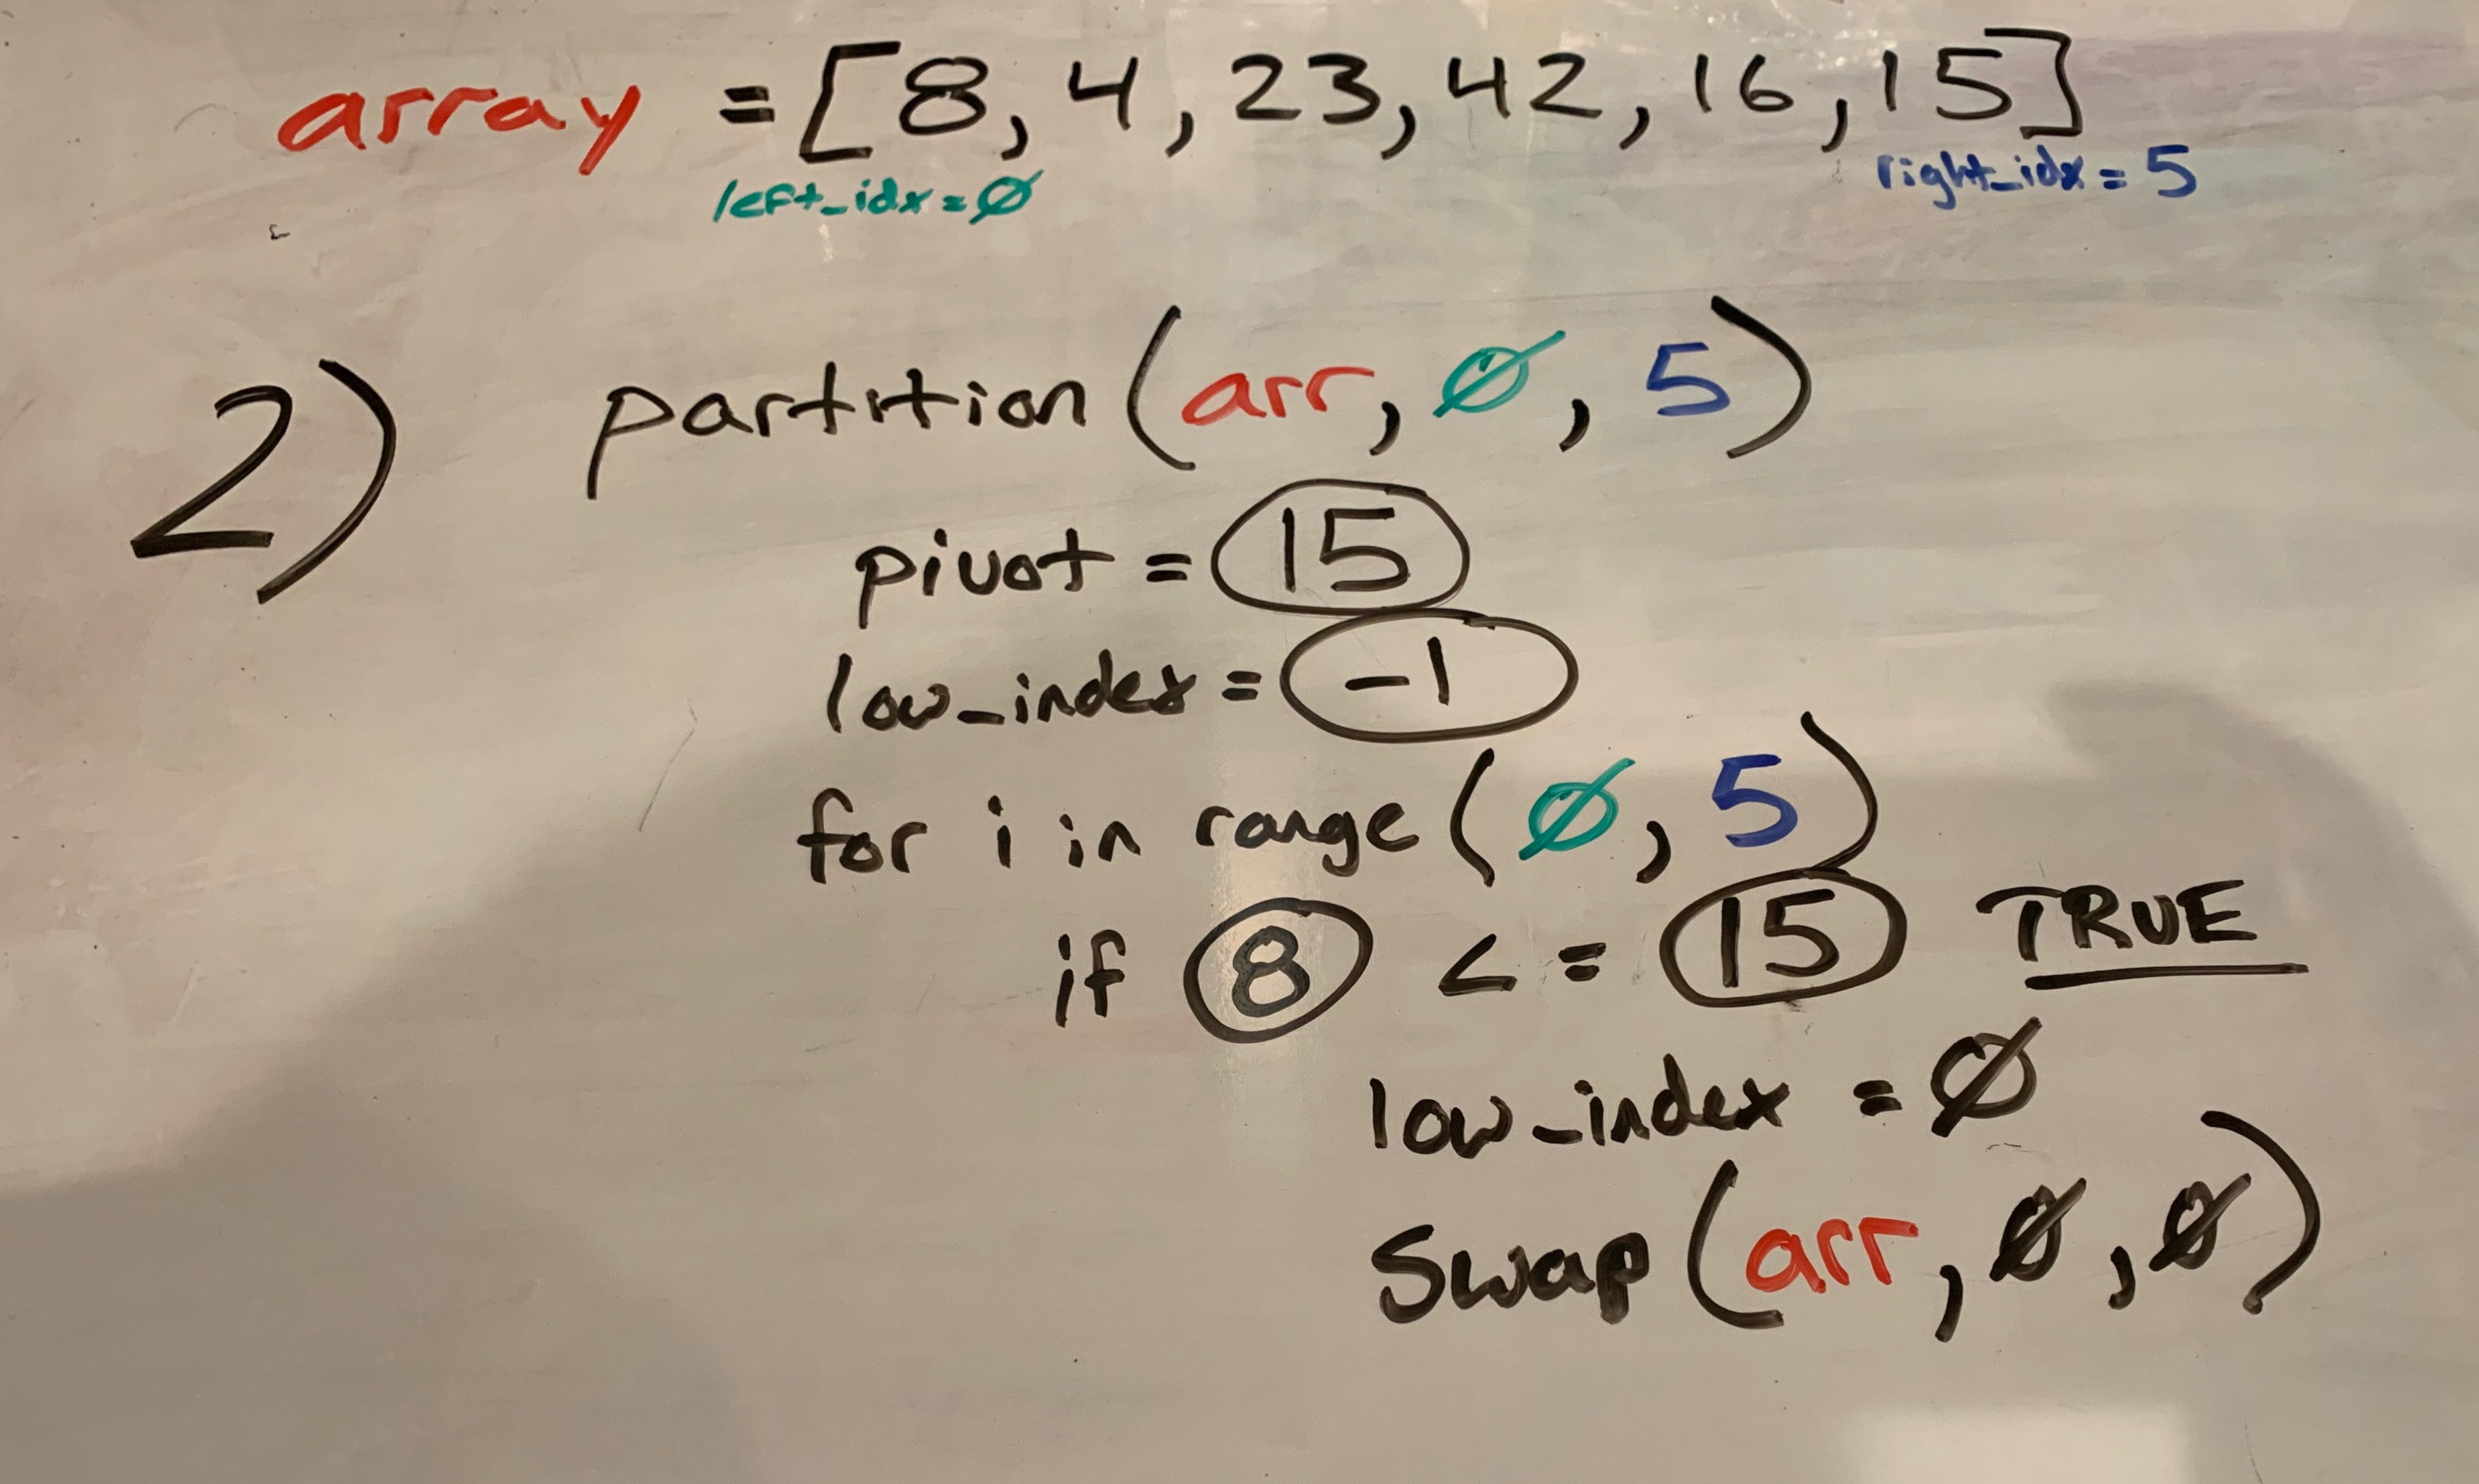 array = [8, 4, 23, 42, 16, 15]
left_idx = Ø right_idx = 5
2) partition (arr, Ø, 5)
pivot = 15
low_index = -1
for i in range (Ø, 5)
if 8 <= 15 TRUE
low_index = Ø
Swap (arr, Ø, Ø)